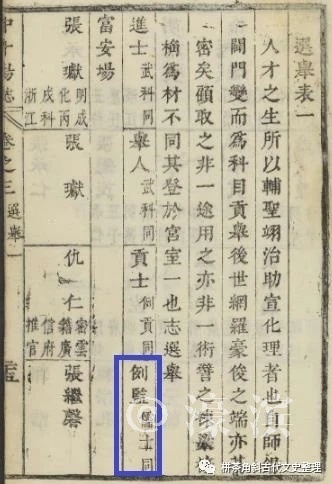 選舉表一
人才之生所以輔聖翊治助宣化理者也自師錫
闢門變而為科目貢舉後世網羅豪俊之端亦甚
密矣顧取之非一途用之亦非一術譬之
橡為材不同其登於宮室一也志選舉
進士 武科同 舉人 武科同 貢士 例貢同 例監 儒士同
富安場
張獻 明成化丙戌科浙江 張獻 仇仁 密雲籍廣信府推官 張繼馨
中十場志 卷之三 選舉一
拼茶角斜古代文史整理